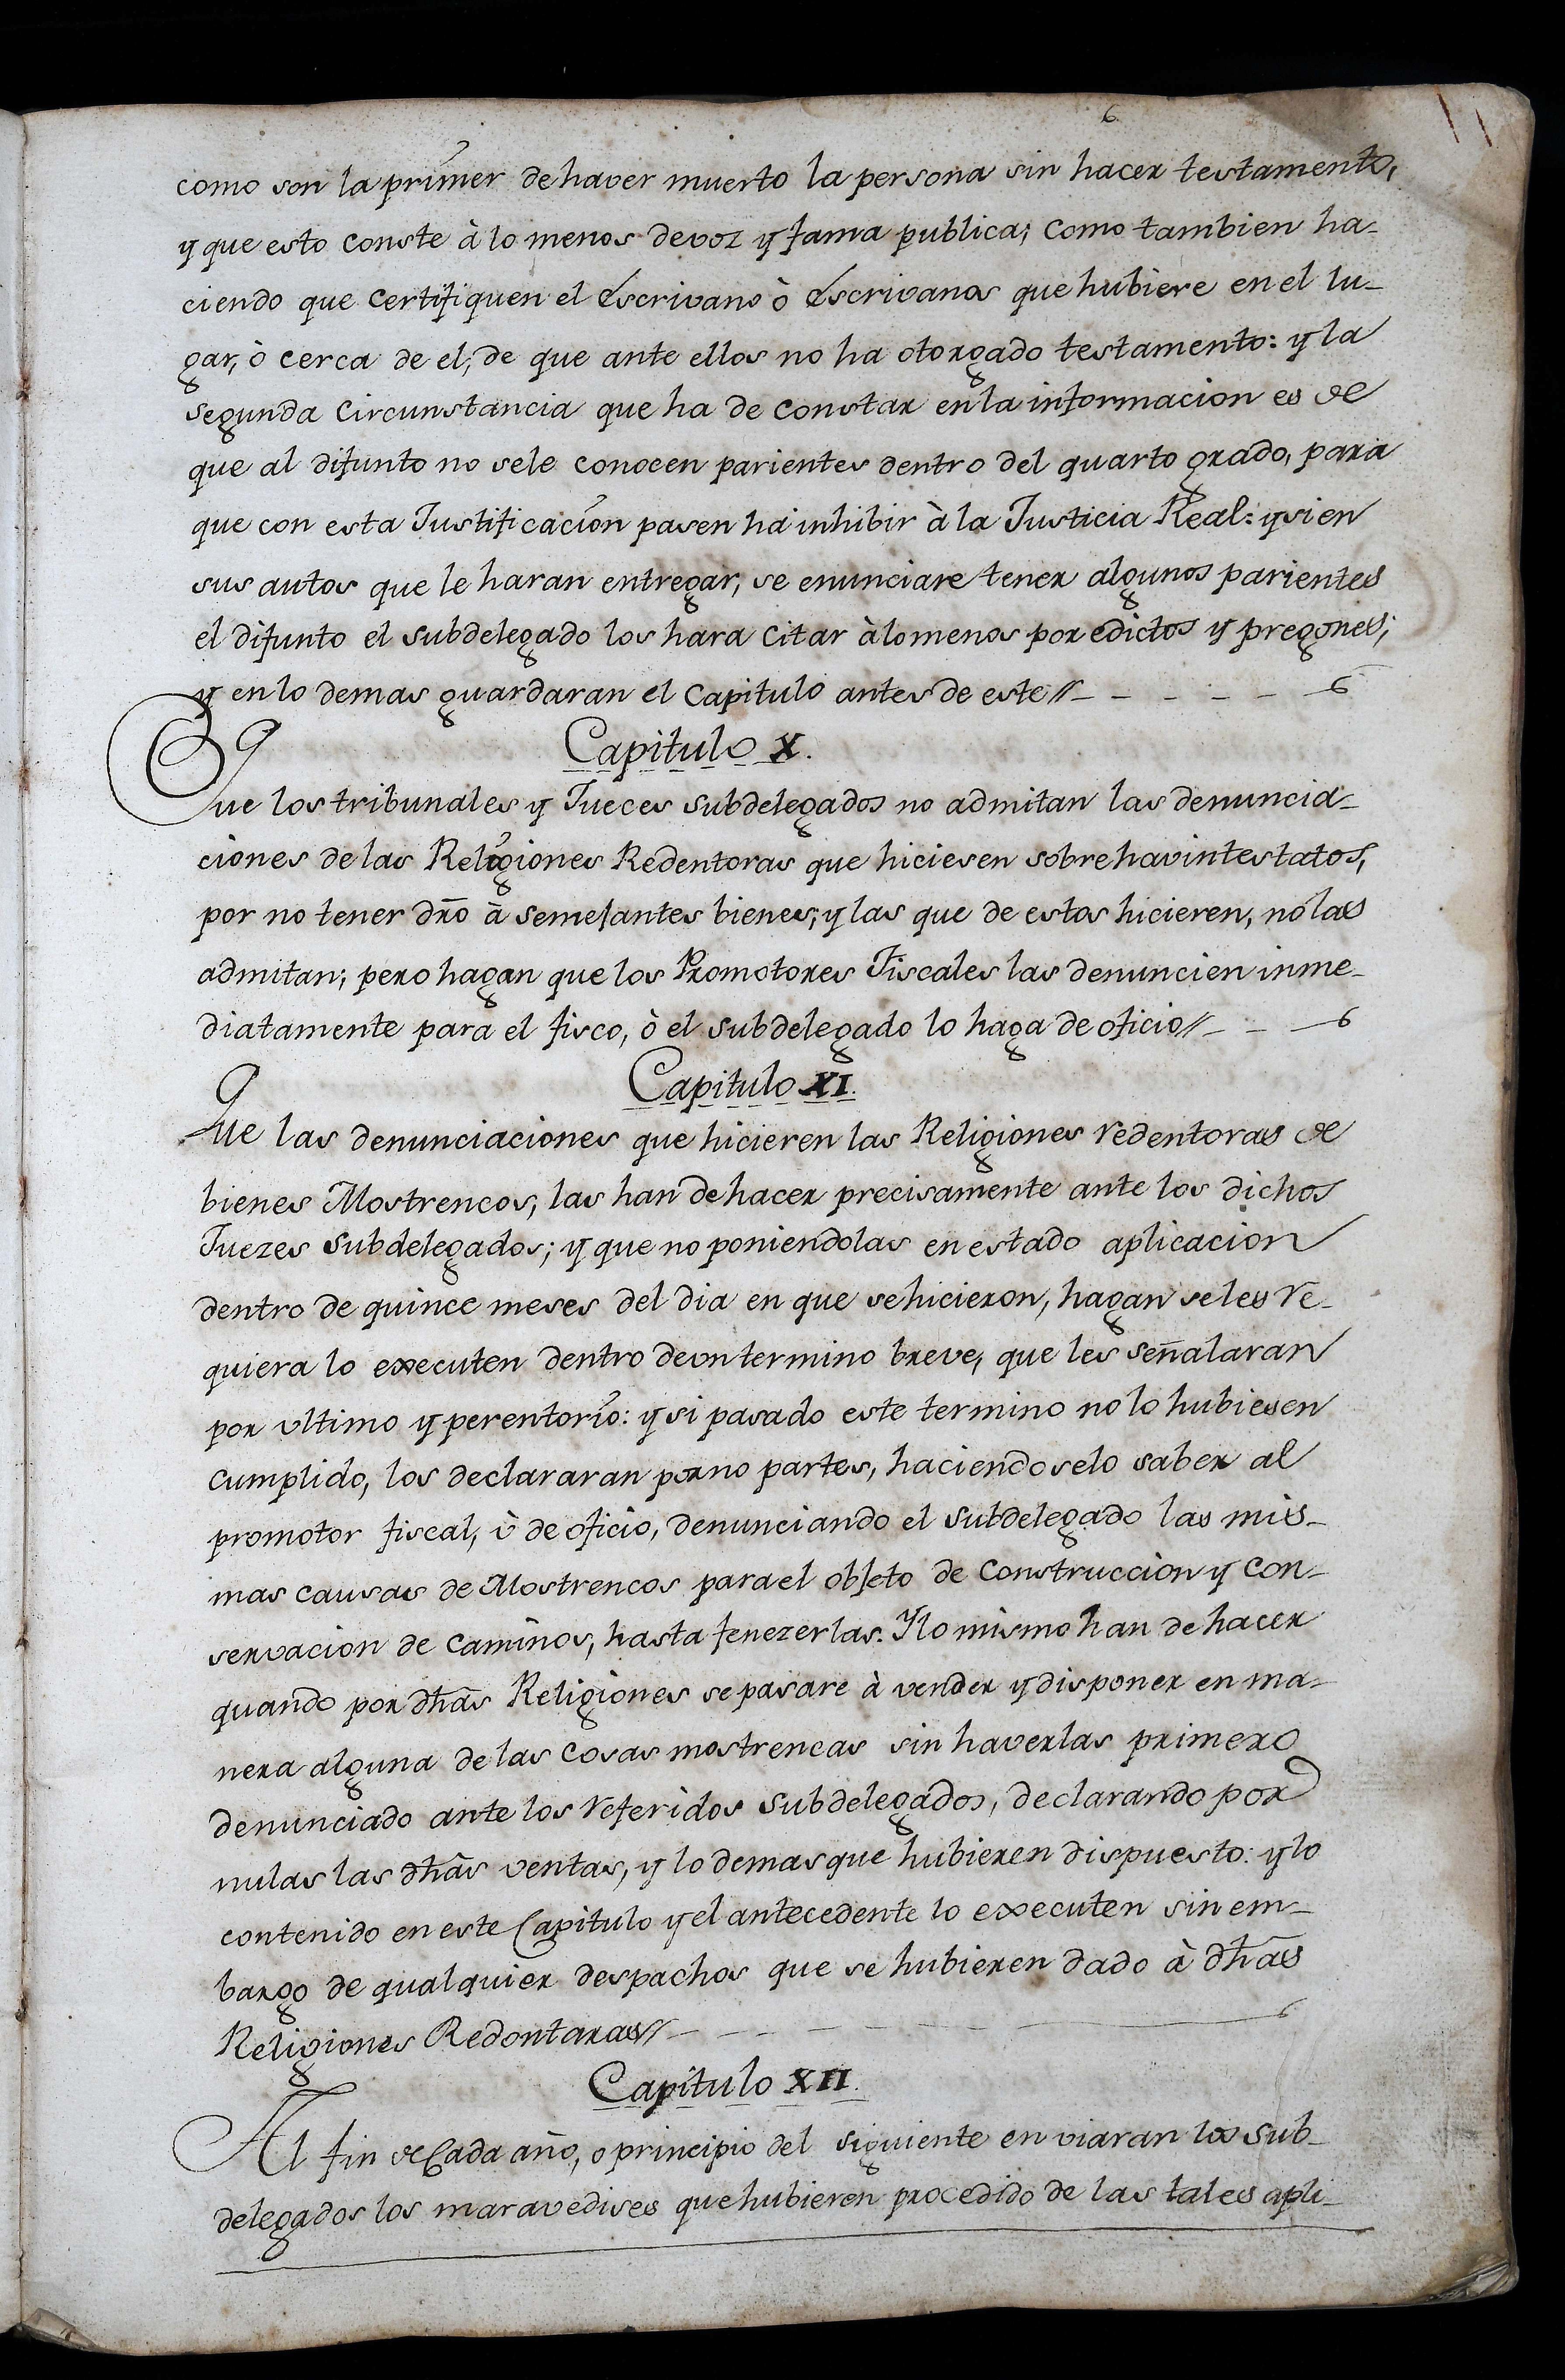 6
11
como son la primer de haver muerto la persona sin hacer testamento,
y que esto conste à lo menos de voz y fama publica; como tambien ha-
ciendo que certifiquen el Escrivano ò Escrivanos que hubiere en el lu-
gar, ò cerca de el; de que ante ellos no ha otorgado testamento: y la
segunda circunstancia que ha de constar en la informacion es de
que al difunto no se le conocen parientes dentro del quarto grado, para
que con esta Justificacion pasen ha inhibir à la Justicia Real: y si en
sus autos que le haran entregar, se enunciare tener algunos parientes
el difunto el subdelegado los hara citar à lo menos por edictos y pregones;
y en lo demas guardaran el Capitulo antes de este//- - - - - -6
Capitulo X.
Que los tribunales y Jueces subdelegados no admitan las denuncia-
ciones de las Religiones Redentoras que hiciesen sobre havintestatos,
por no tener dr̃o à semejantes bienes; y las que de estos hicieren, no las
admitan; pero hagan que los Promotores Fiscales las denuncien inme-
diatamente para el fisco, ò el subdelegado lo haga de oficio//- - -6
Capitulo XI.
Que las denunciaciones que hicieren las Religiones redentoras de
bienes Mostrencos, las han de hacer precisamente ante los dichos
Juezes subdelegados; y que no poniendolas en estado aplicacion
dentro de quince meses del dia en que se hicieron, hagan se les re-
quiera lo executen dentro de un termino breve, que les señalaran
por ultimo y perentorio: y si pasado este termino no lo hubiesen
cumplido, los declararan por no partes, haciendoselo saber al
promotor fiscal, ù de oficio, denunciando el subdelegado las mis-
mas causas de Mostrencos para el objeto de construccion y con-
servacion de caminos, hasta fenezerlas. Y lo mismo han de hacer
quando por dh̃as Religiones se pasare à vender y disponer en ma-
nera alguna de las cosas mostrencas sin haverlas primero
denunciado ante los referidos subdelegados, declarando por
nulas las dh̃as ventas, y lo demas que hubieren dispuesto: y lo
contenido en este Capitulo y el antecedente lo executen sin em-
bargo de qualquier despachos que se hubieren dado à dh̃as
Religiones Redontaras//- - - - - -6
Capitulo XII.
Al fin de Cada año, o principio del siguiente enviaran los sub-
delegados los maravedises que hubieren procedido de las tales apli-